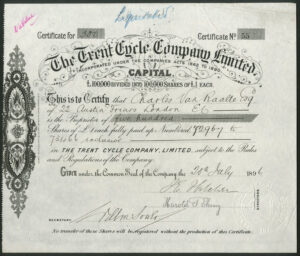 Certificate for 500
Certificate No 55
The Trent Cycle Company Limited.
INCORPORATED UNDER THE COMPANIES ACTS 1862 TO 1890.
CAPITAL
£100,000 DIVIDED INTO 100,000 SHARES OF £1 EACH.
This is to Certify that Charles Van Raalte Esq
of 22 Austin Friars London E.C.
is the Proprietor of five hundred
Shares of £1 each fully paid up Numbered 72967 to
73466 inclusive
IN THE TRENT CYCLE COMPANY, LIMITED, subject to the Rules
and Regulations of the Company.
Given under the Common Seal of the Company the 20th July 1896
SECRETARY.
No transfer of these Shares will be registered without the production of this Certificate.